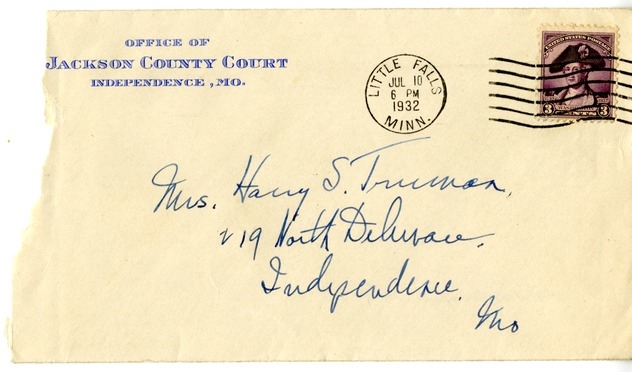 OFFICE OF
JACKSON COUNTY COURT
INDEPENDENCE, MO.
LITTLE FALLS
JUL 10
6 PM
1932
MINN.
UNITED STATES POSTAGE
3 CENTS 3
Mrs. Harry S. Truman,
219 North Delaware.
Independence.
Mo